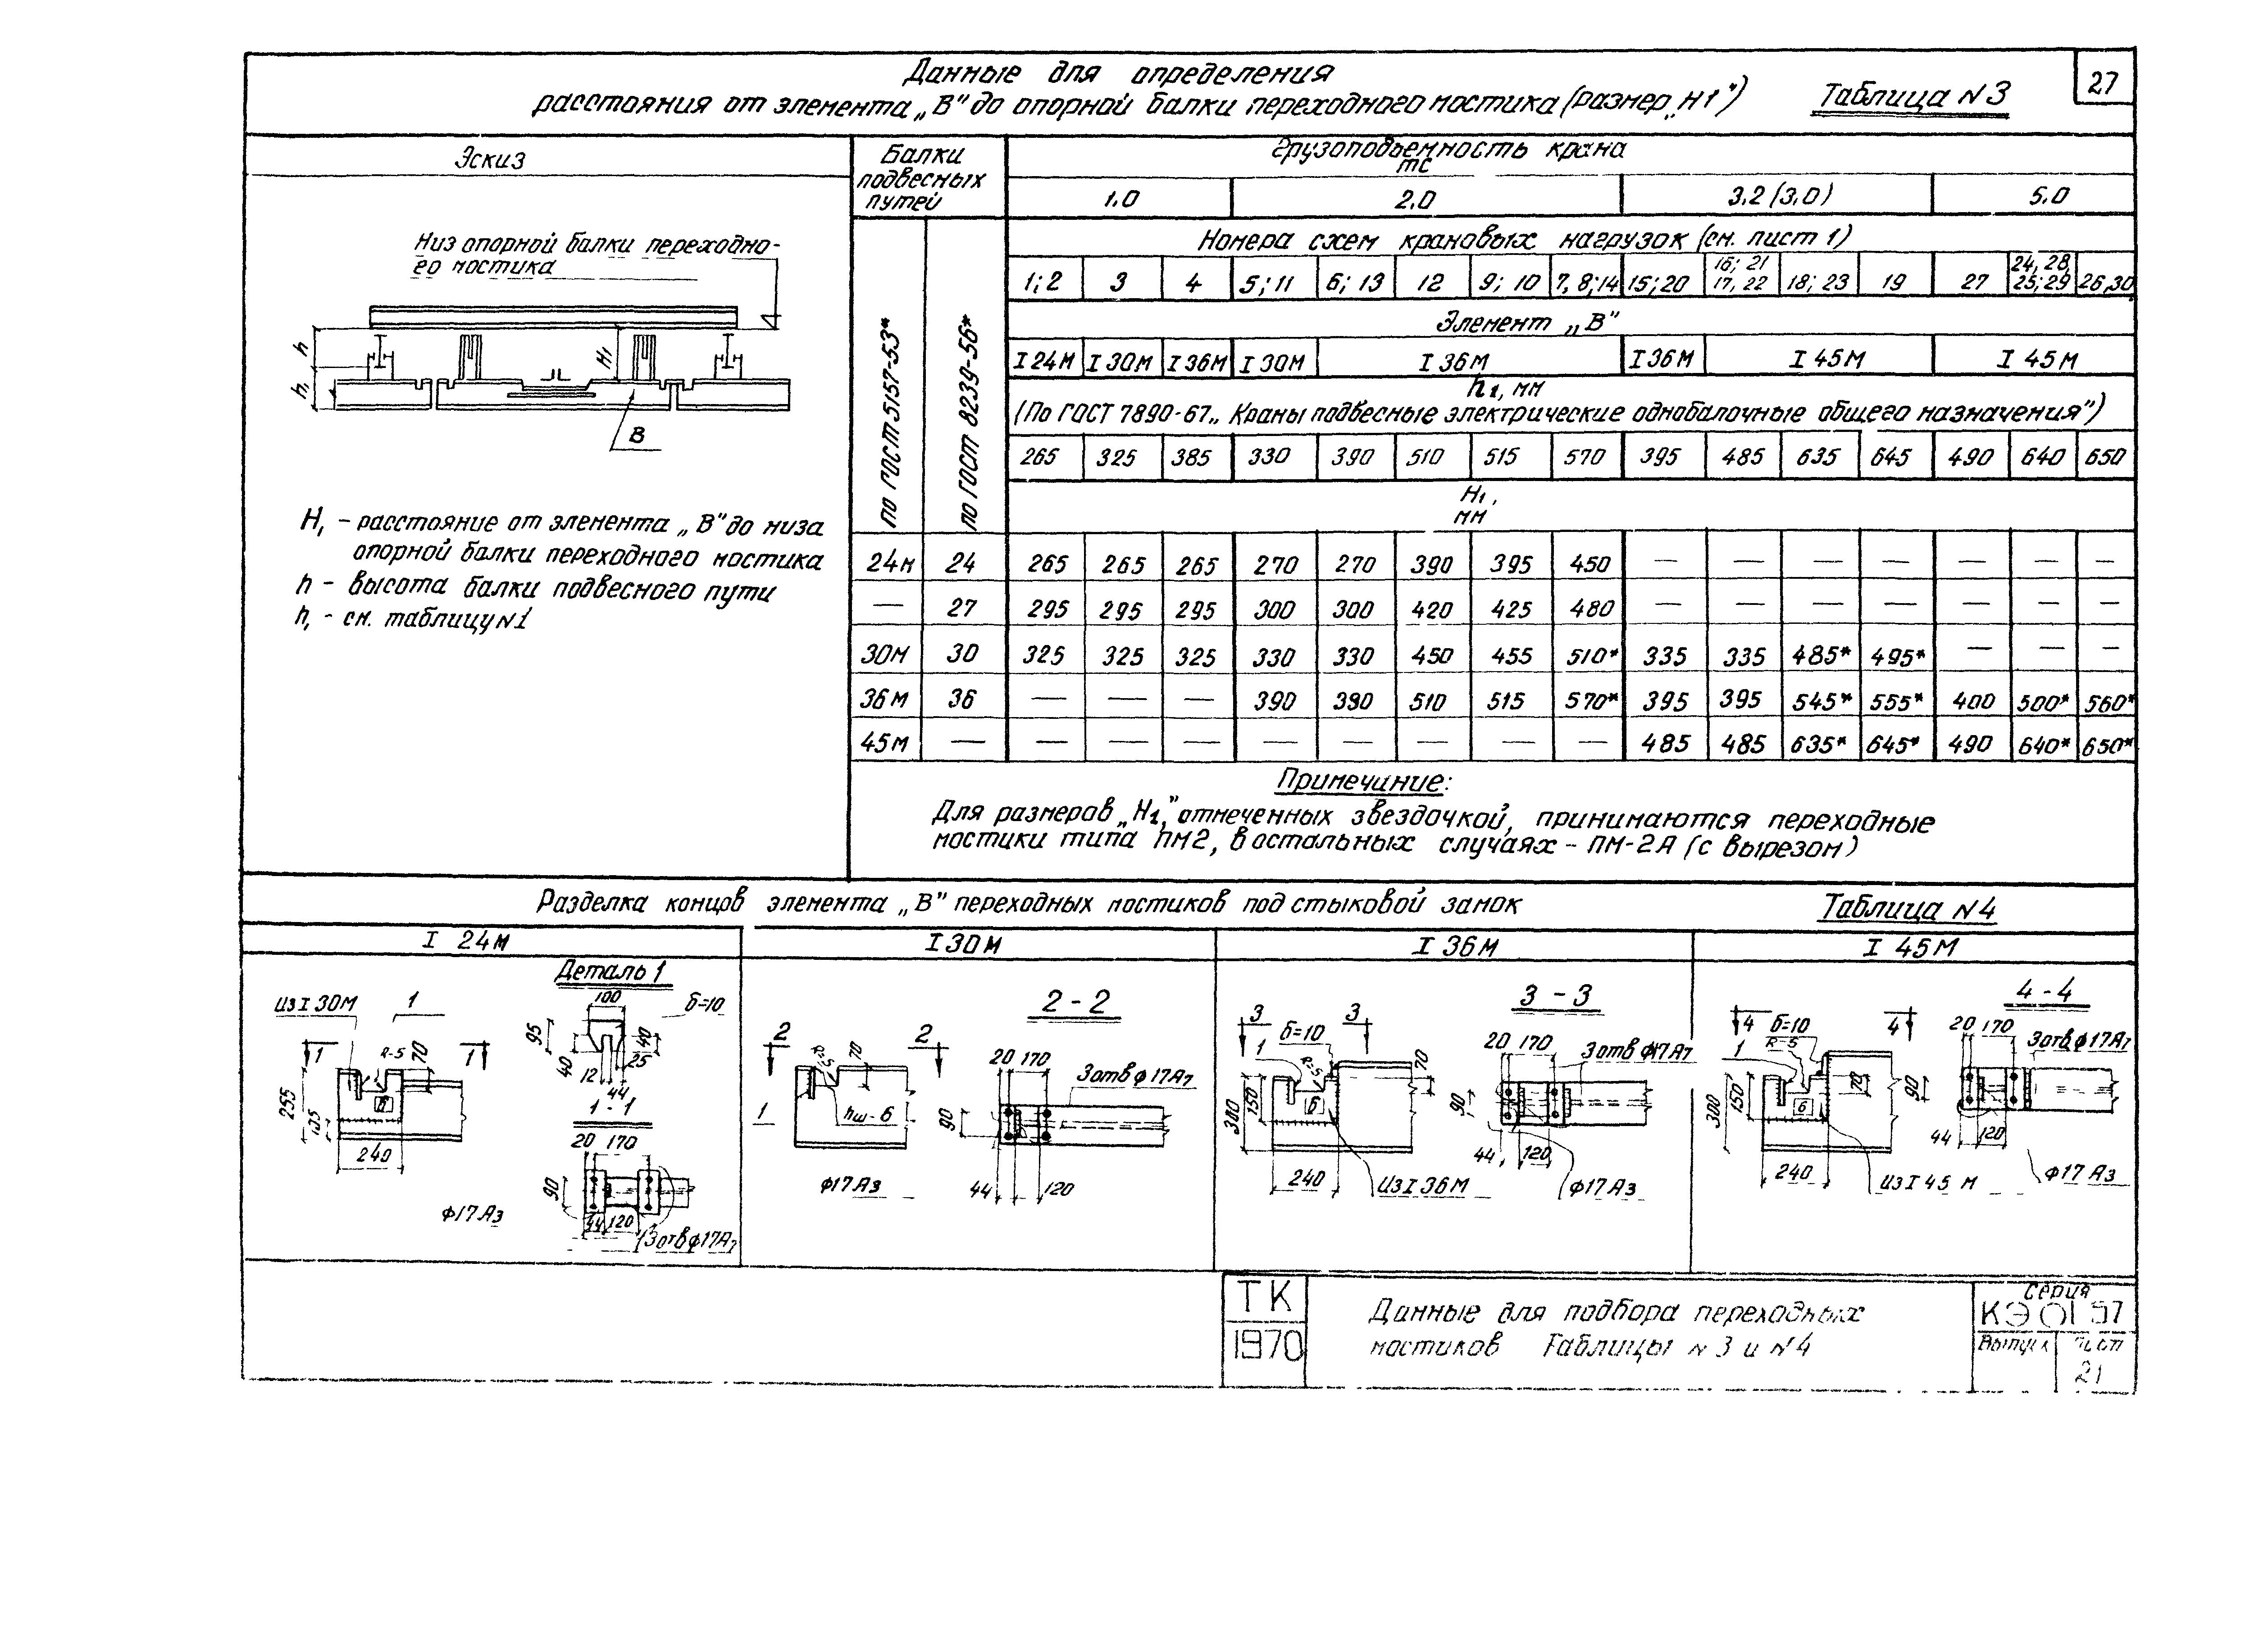 27
Данные для определения
расстояния от элемента „В" до опорной балки переходного мостика (размер „Н1")
Таблица N3
Эскиз
Низ опорной балки переходно-
го мостика
h
h₁
H₁
В
H₁ - расстояние от элемента „В" до низа
опорной балки переходного мостика
h - высота балки подвесного пути
h₁ - см. таблицу N1
Балки
подвесных
путей
по ГОСТ 5157-53*
по ГОСТ 8239-56*
Грузоподъемность крана
тс
1,0 2,0 3,2 (3,0) 5,0
Номера схем крановых нагрузок (см. лист 1)
1; 2 3 4 5; 11 6; 13 12 9; 10 7, 8; 14 15; 20 16; 21 17, 22 18; 23 19 27 24, 28, 25; 29 26,30
Элемент „В"
I 24М I 30М I 36М I 30М I 36М I 36М I 45М I 45М
h1, мм
(По ГОСТ 7890-67 „Краны подвесные электрические однобалочные общего назначения")
265 325 385 330 390 510 515 570 395 485 635 645 490 640 650
H1,
мм
24м 24 265 265 265 270 270 390 395 450 — — — — — — —
— 27 295 295 295 300 300 420 425 480 — — — — — — —
30М 30 325 325 325 330 330 450 455 510* 335 335 485* 495* — — —
36М 36 — — — 390 390 510 515 570* 395 395 545* 555* 400 500* 560*
45М — — — — — — — — — 485 485 635* 645* 490 640* 650*
Примечание:
Для размеров „Н1", отмеченных звездочкой, принимаются переходные
мостики типа ПМ2, в остальных случаях - ПМ-2А (с вырезом)
Разделка концов элемента „В" переходных мостиков под стыковой замок
Таблица N4
I 24М
I 30М
I 36М
I 45М
Из I 30М
1
Деталь 1
100
δ=10
95
40
40
25
12
44
1
R-5
70
1
255
135
6
240
1-1
20 170
90
44 120
ф17А3
3 отв ф17А7
2-2
2
2
70
1
hш-6
ф17А3
20 170
3 отв ф17А7
90
44
120
3-3
3
3
δ=10
1
R-5
70
300
150
6
240
Из I 36М
20 170
3 отв ф17А7
90
44
120
ф17А3
4-4
4
4
δ=10
R-5
1
70
300
150
6
240
Из I 45 М
20 170
3 отв ф17А7
90
44
120
ф17А3
ТК
1970
Данные для подбора переходных
мостиков Таблицы N 3 и N4
Серия
КЭ 01 57
Выпуск
Лист
21